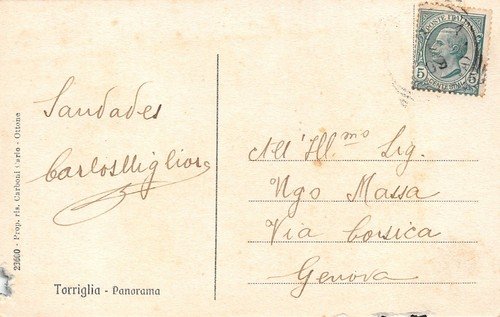 Saudades
Carlos Miglior
All' Ill.mo Sig.
Ugo Massa
Via Corsica
Genova
Torriglia - Panorama
23660 - Prop. ris. Carboni Carlo - Ottone
POSTE ITALIANE
5 5